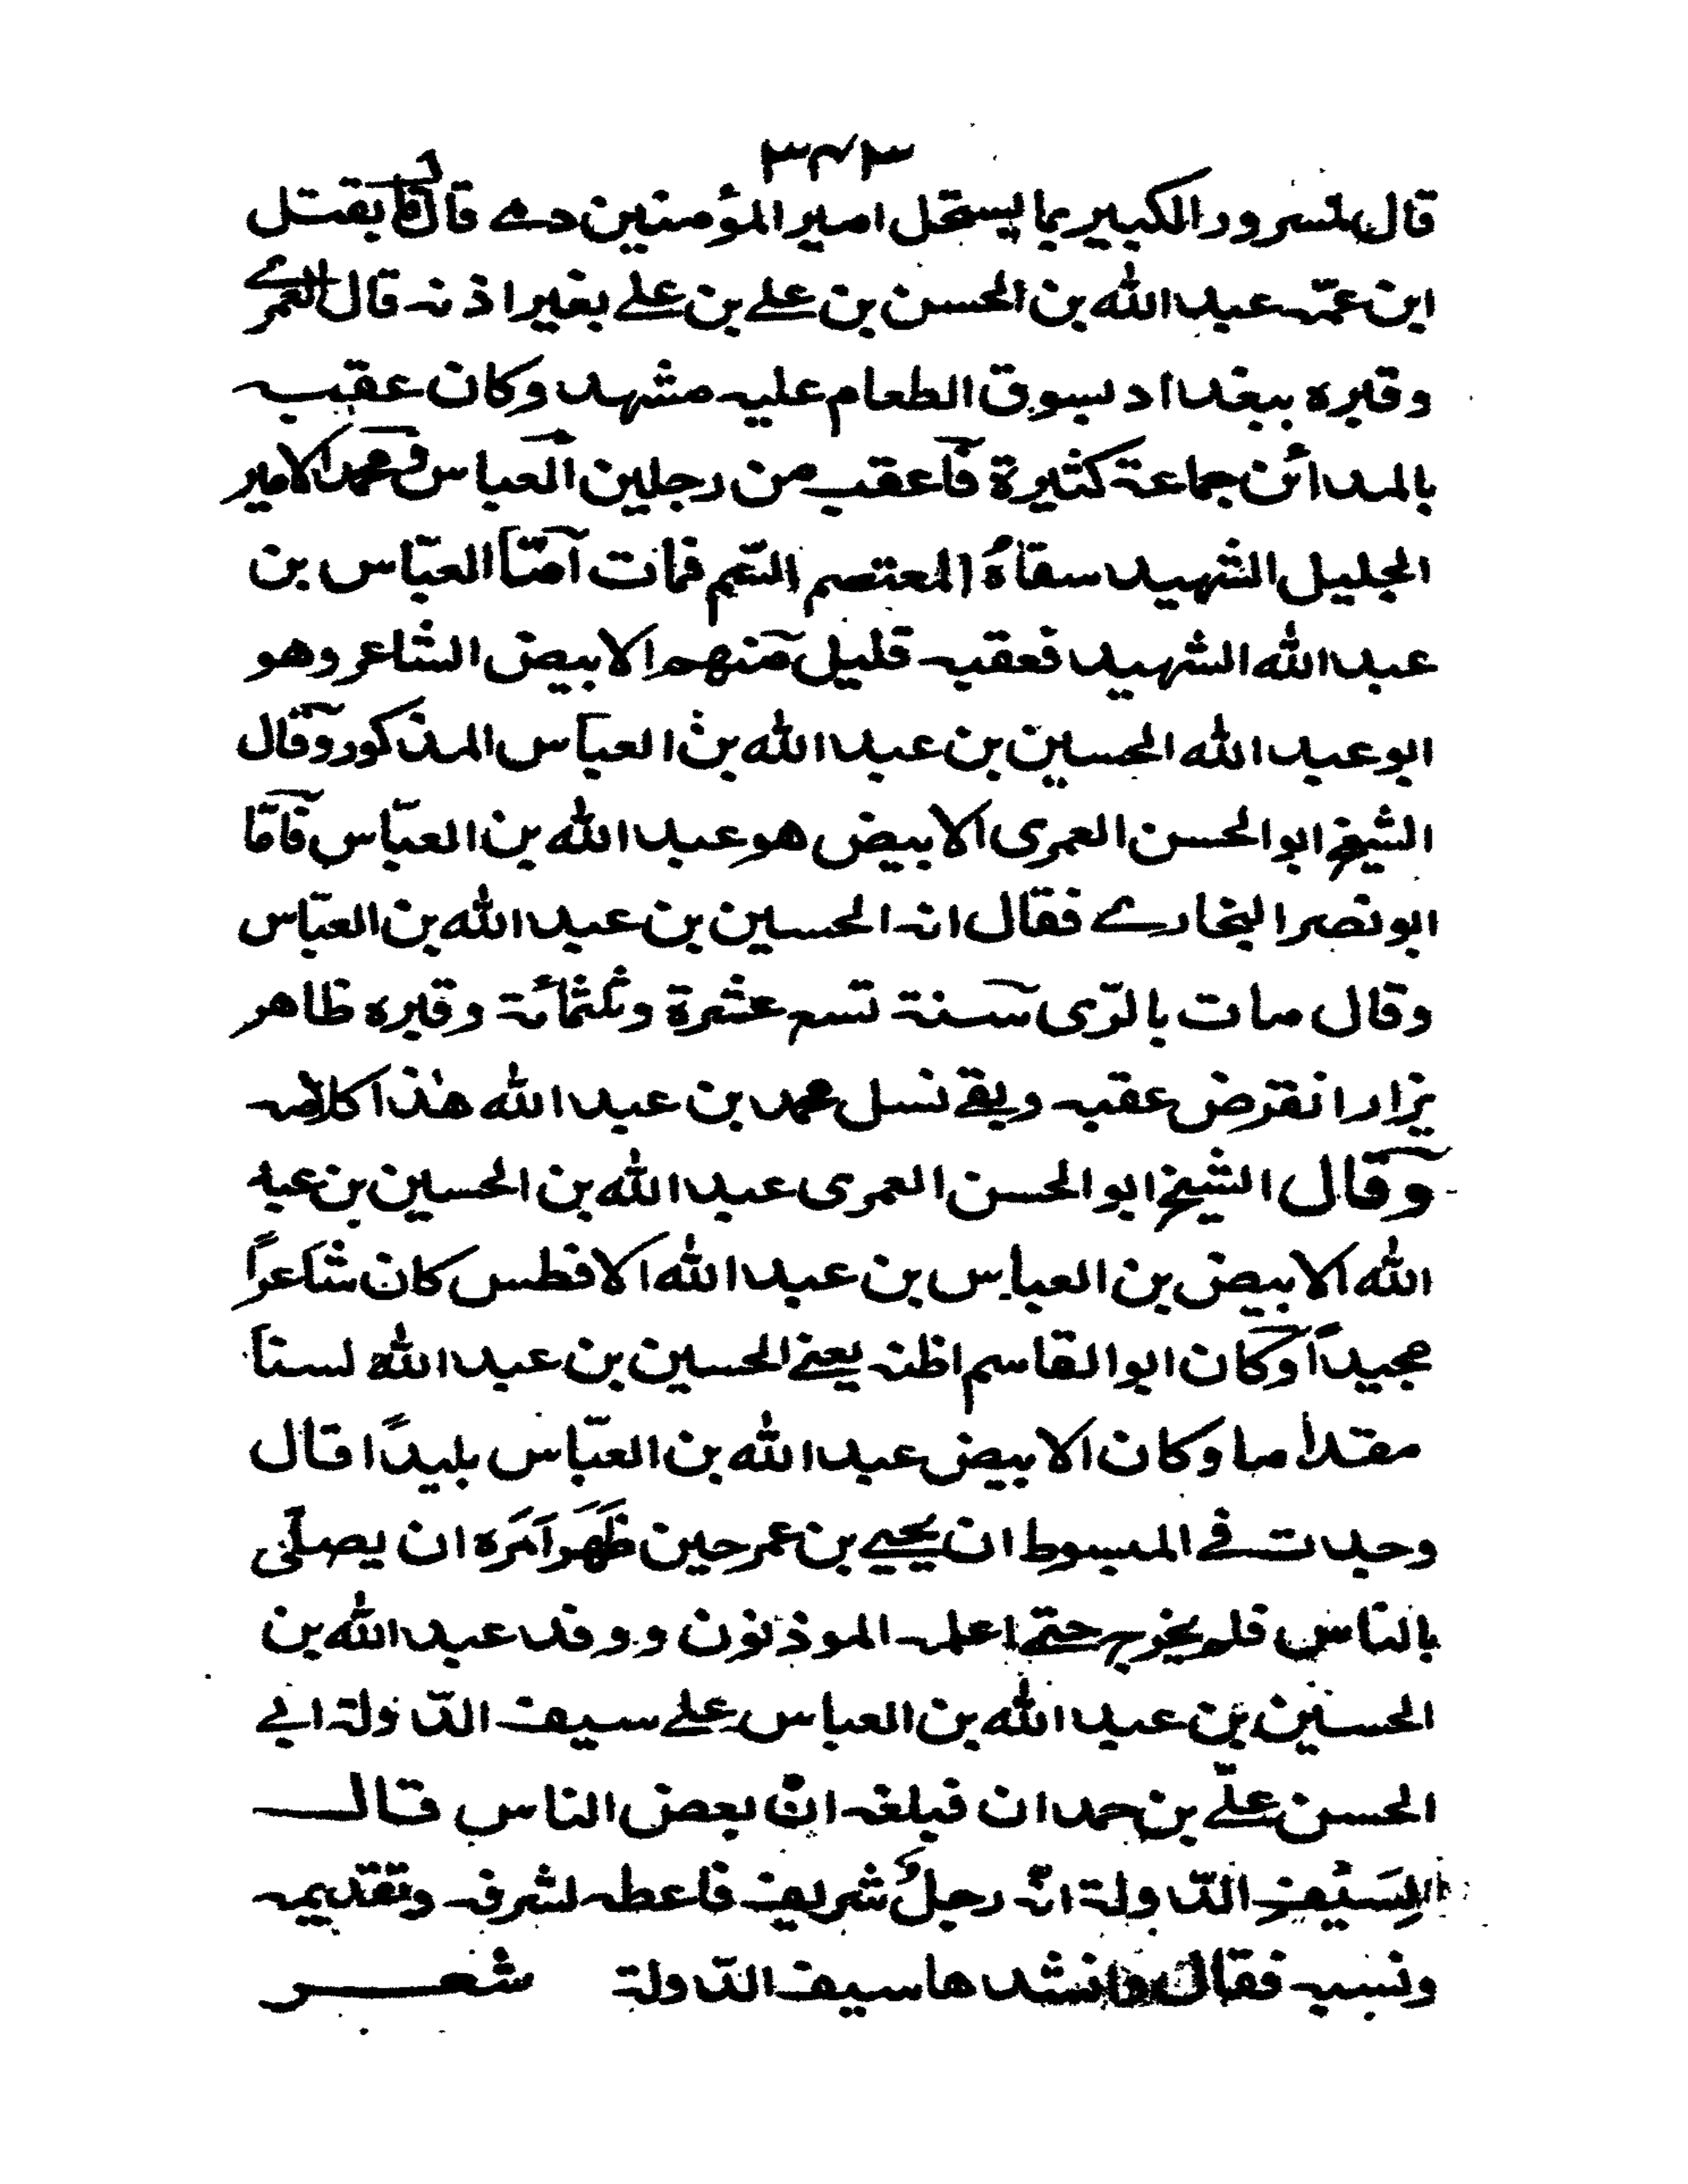 ٣٤٣
قال لمسرور الكبير بما يستحل امير المؤمنين دمي قال بقتل
ابن عمّه عبد الله بن الحسن بن علے بن علے بغير اذنه قال العمرے
وقبره ببغداد بسوق الطعام عليه مشهد وكان عقبه
بالمدائن جماعة كثيرة فاعقب من رجلين العباس و محمد الامير
الجليل الشهيد سقاهُ المعتصم السّم فمات امّا العبّاس بن
عبد الله الشهيد فعقبه قليل منهم الابيض الشاعر وهو
ابو عبد الله الحسين بن عبد الله بن العباس المذكور وقال
الشيخ ابو الحسن العمرى الابيض هو عبد الله بن العبّاس فامّا
ابو نصر البخارے فقال انه الحسين بن عبد الله بن العبّاس
وقال مات بالرّى سنة تسع عشرة وثلثمائة وقبره ظاهر
يزار انقرض عقبه وبقے نسل محمد بن عبد الله هٰذا كلامه
وقال الشيخ ابو الحسن العمرى عبد الله بن الحسين بن عبد
الله الابيض بن العباس بن عبد الله الافطس كان شاعراً
مجيداً وكان ابو القاسم اظنه يعنے الحسين بن عبد الله لسنا
مقداما وكان الابيض عبد الله بن العبّاس بليدًا قال
وجدت فے المبسوط ان يحيے بن عمر حين ظَهَر اَمَره ان يصلّى
بالناس فلم يخرج حتے اعلمه الموذنون و وفد عبد الله بن
الحسين بن عبد الله بن العباس علے سيف الدّولة ابے
الحسن علے بن حمدان فبلغه انّ بعض الناس قال
لسَيف الدّولة انّه رجلُ شريف فاعطه لشرفه وتقديمه
ونسبه فقال وانشدها سيف الدّولة شعر